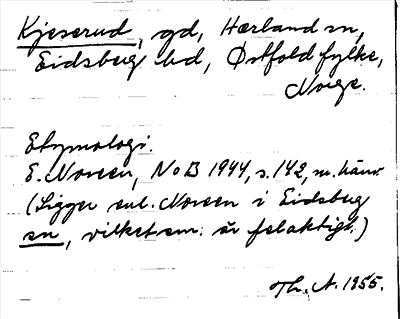 Kjeserud, gd, Hærland sn,
Eidsberg hd, Østfold fylke,
Norge.
Etymologi.
E. Noreen, NoB 1944, s. 142, m. hänv.
(Ligger enl. Noreen i Eidsberg
sn, vilket em. är felaktigt.)
Th. A. 1955.